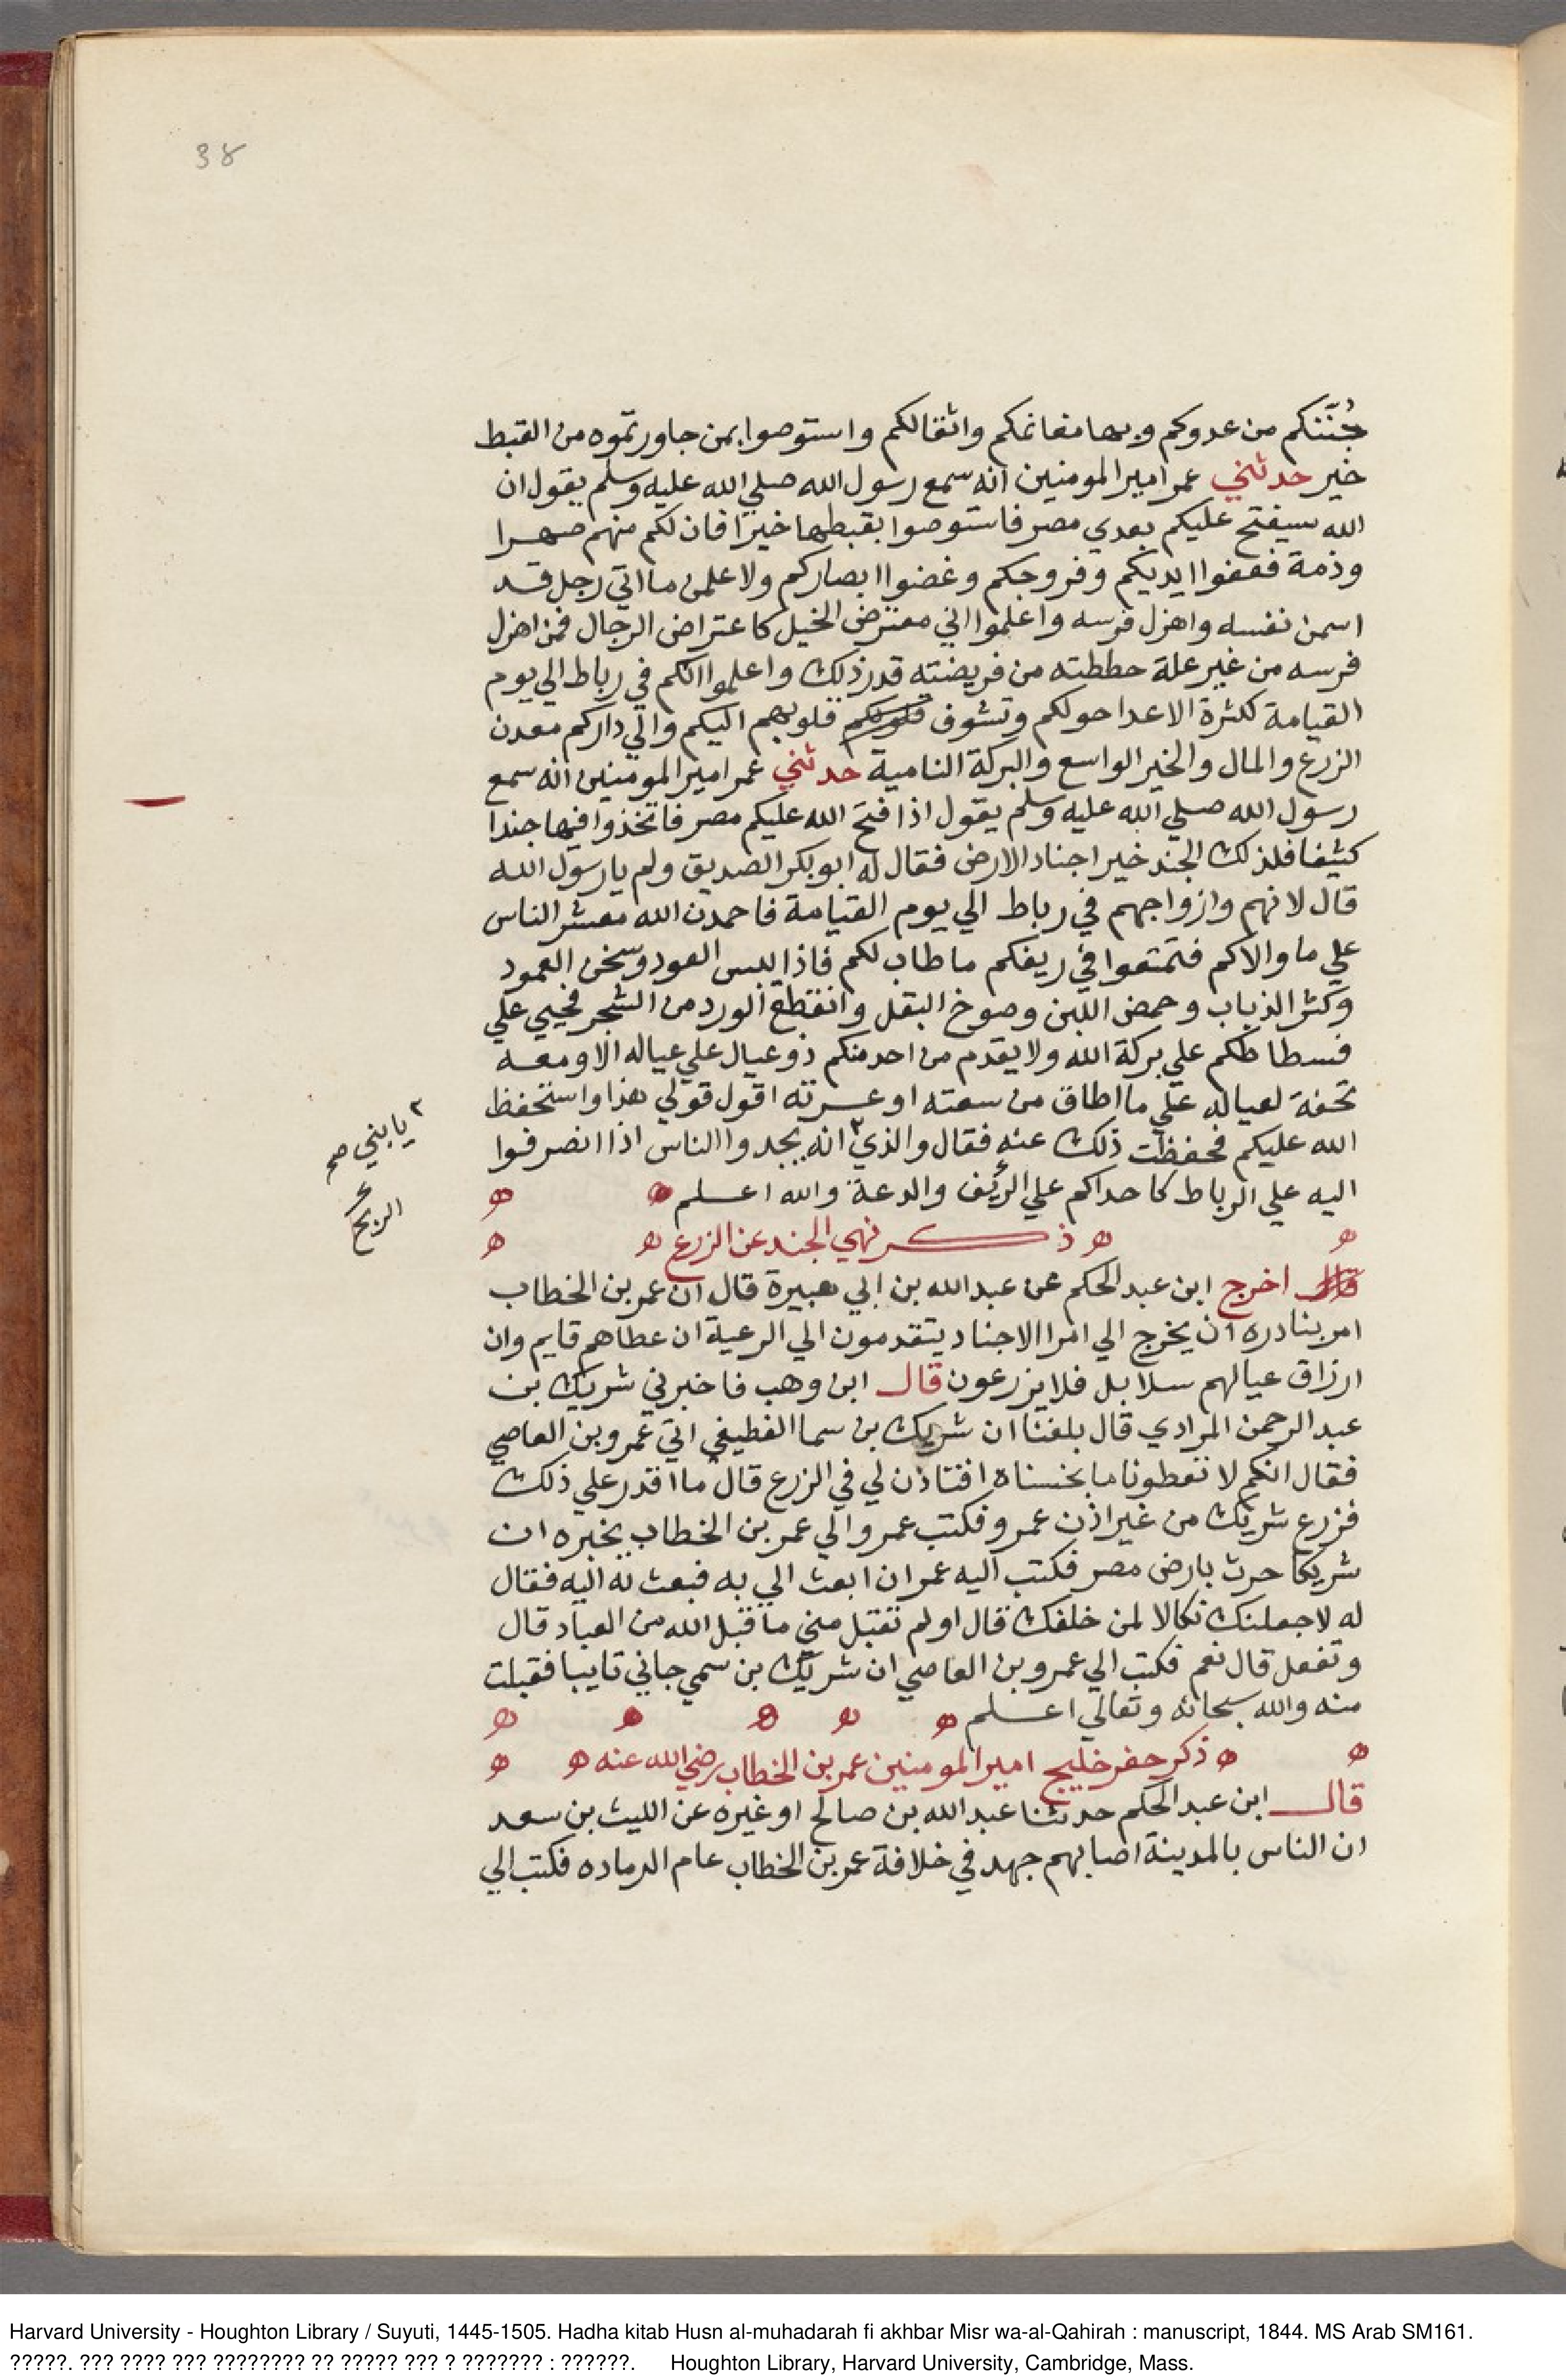 38
جُنّتكم من عدوكم وبها مغانمكم واثقالكم واستوصوا بمن جاورتموه من القبط
خير حدثني عمر امير المومنين انه سمع رسول الله صلي الله عليه وسلم يقول ان
الله سيفتح عليكم بعدي مصر فاستوصوا بقبطها خيرا فان لكم منهم صهرا
وذمة فعفوا ايديكم وفروجكم وغضوا ابصاركم ولا علمن ما اتي رجل قد
اسمن نفسه واهزل فرسه واعلموا اني معترض الخيل كاعتراض الرجال فمن اهزل
فرسه من غير علة حططته من فريضته قدر ذلك واعلموا انكم في رباط الي يوم
القيامة لكثرة الاعدا حولكم وتشوف قلوبكم قلوبهم اليكم والي داركم معدن
الزرع والمال والخير الواسع والبركة النامية حدثني عمر امير المومنين انه سمع
رسول الله صلي الله عليه وسلم يقول اذا فتح الله عليكم مصر فاتخذوا فيها جندا
كثيفا فلذلك الجند خير اجناد الارض فقال له ابو بكر الصديق ولم يا رسول الله
قال لانهم وازواجهم في رباط الي يوم القيامة فاحمدن الله معشر الناس
علي ما والاكم فتمتعوا في ريفكم ما طاب لكم فاذا يبس العود وسخن العمود
وكثر الذباب وحمض اللبن وصوخ البقل وانقطع الورد من الشجر فحيي علي
فسطاطكم علي بركة الله ولا يقدم من احد منكم ذو عيال علي عياله الا ومعه
تحفة لعياله علي ما اطاق من سعته او عسرته اقول قولي هذا واستحفظ
الله عليكم فحفظت ذلك عنه فقال والذي ٢ انه يجدوا الناس اذا انصرفوا
٢ يا بني صح
اليه علي الرباط كما حداكم علي الريف والدعة والله اعلم ه ه
الربح
ه ه ذكر نهي الجند عن الزرع ه ه
قال اخرج ابن عبد الحكم عن عبد الله بن ابي هبيرة قال ان عمر بن الخطاب
امر بنادره ان يخرج الي امرا الاجناد يتقدمون الي الرعية ان عطاهم قايم وان
ارزاق عيالهم سلابل فلا يزرعون قال ابن وهب فاخبرني شريك بن
عبد الرحمن المرادي قال بلغنا ان شريك بن سما الغطيفي اتي عمرو بن العاصي
فقال انكم لا تعطونا ما يحسناه افتاذن لي في الزرع قال ما اقدر علي ذلك
فزرع شريك من غير اذن عمرو فكتب عمرو الي عمر بن الخطاب يخبره ان
شريكا حرث بارض مصر فكتب اليه عمر ان ابعث الي به فبعث به اليه فقال
له لاجعلنك نكالا لمن خلفك قال او لم تقبل مني ما قبل الله من العباد قال
وتفعل قال نعم فكتب الي عمرو بن العاصي ان شريك بن سمي جاني تايبا فقبلت
منه والله سبحانه وتعالي اعلم ه ه ه ه ه
ه ه ذكر حفر خليج امير المومنين عمر بن الخطاب رضي الله عنه ه ه
قال ابن عبد الحكم حدثنا عبد الله بن صالح او غيره عن الليث بن سعد
ان الناس بالمدينة اصابهم جهد في خلافة عمر بن الخطاب عام الرماده فكتب الي
Harvard University - Houghton Library / Suyuti, 1445-1505. Hadha kitab Husn al-muhadarah fi akhbar Misr wa-al-Qahirah : manuscript, 1844. MS Arab SM161.
?????. ??? ???? ??? ???????? ?? ????? ??? ? ??????? : ??????. Houghton Library, Harvard University, Cambridge, Mass.